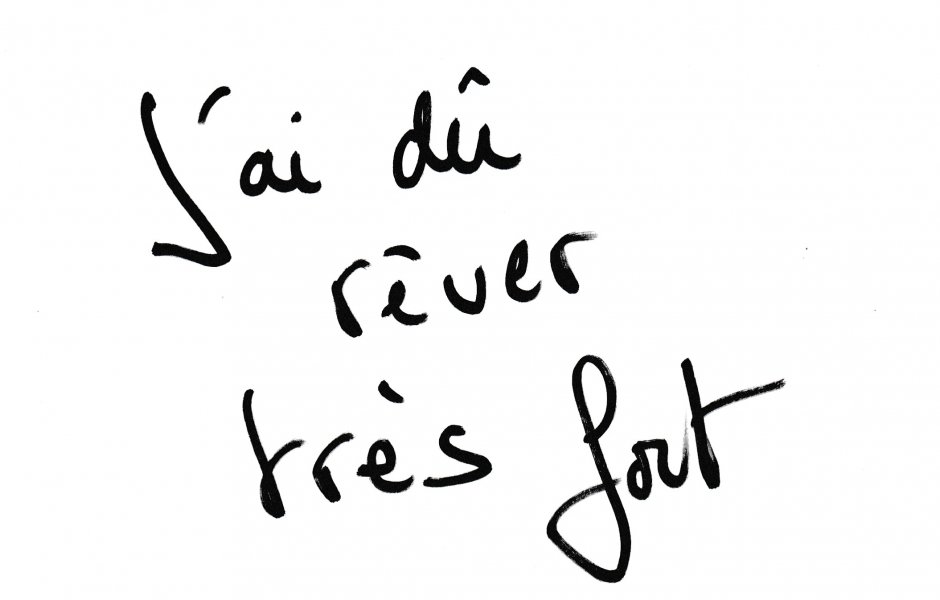 J'ai dû
rêver
très fort